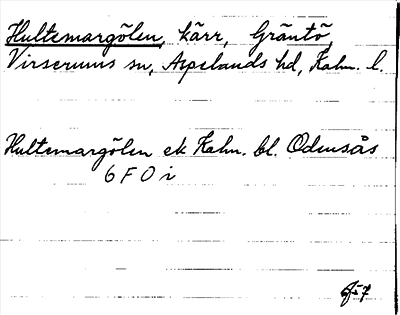 Hultsmargölen, kärr, Gräntö,
Virserums sn, Aspelands hd, Kalm. l.
Hultsmargölen ek Kalm. bl. Odensås
6 F 0 i